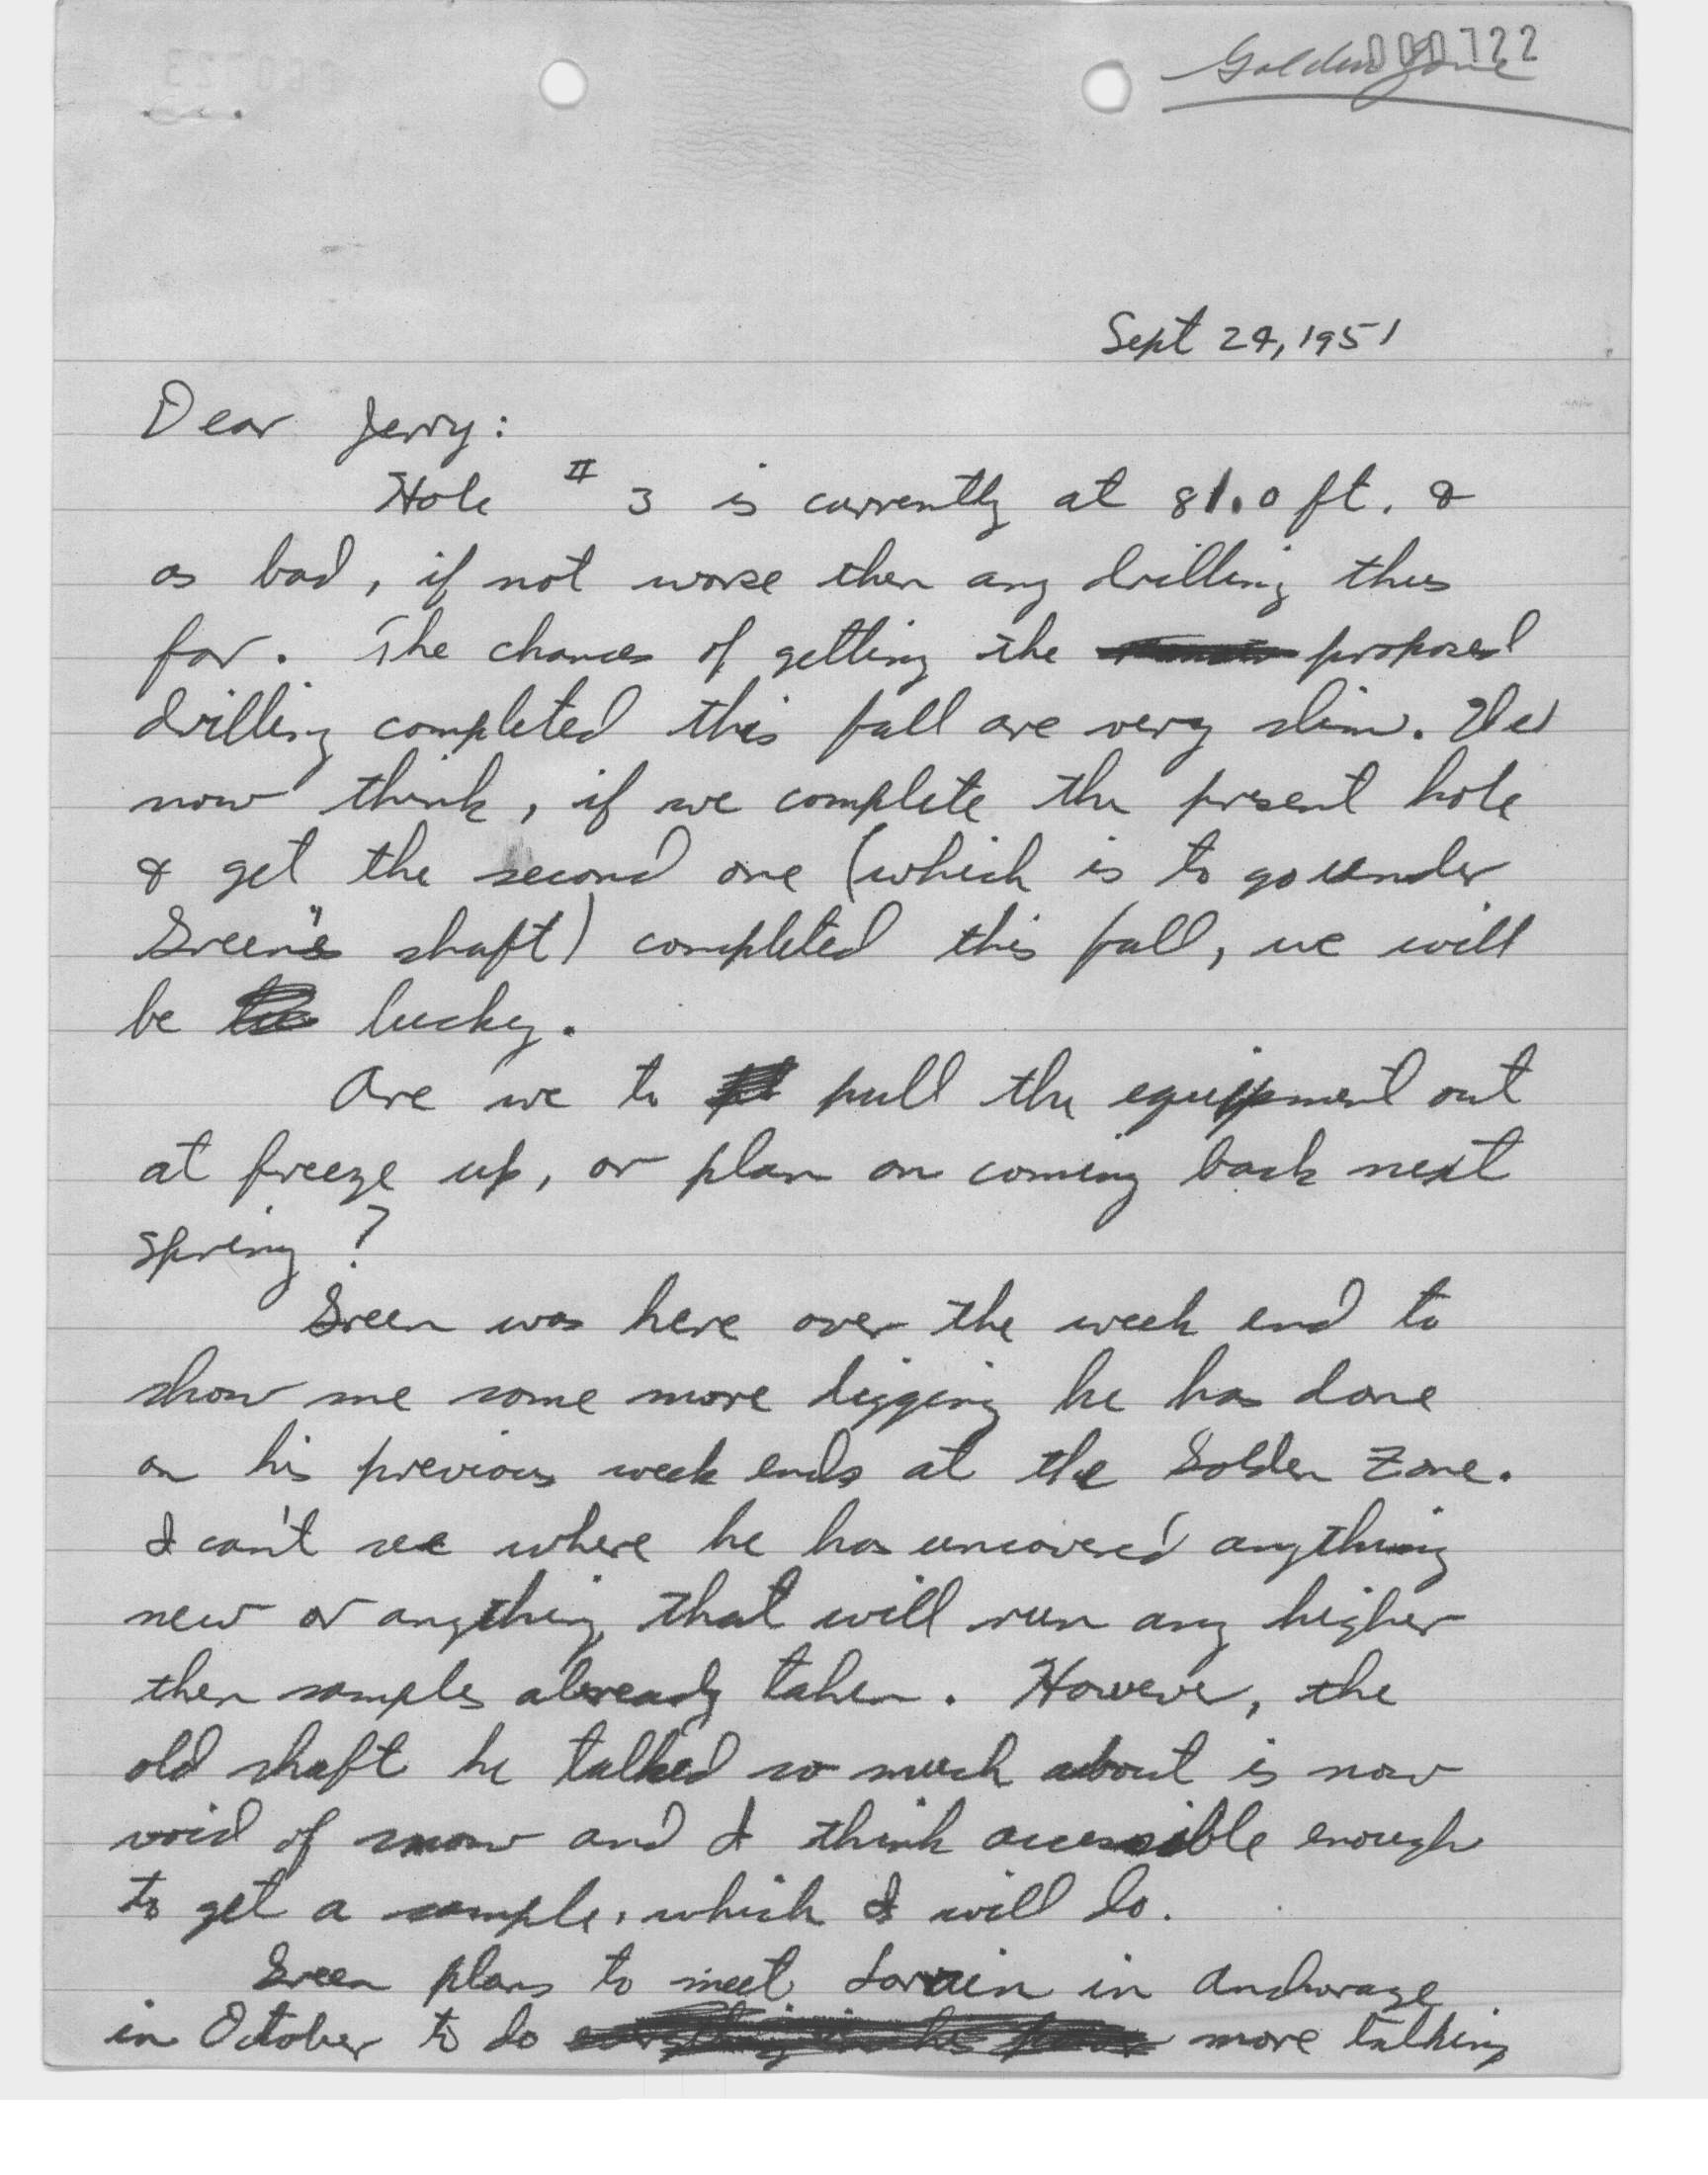 Golden Zone
000722
Sept 24, 1951
Dear Jerry:
Hole # 3 is currently at 81.0 ft. &
as bad, if not worse then any drilling thus
far. The chances of getting the proposed
drilling completed this fall are very slim. We
now think, if we complete the present hole
& get the second one (which is to go under
Green's shaft) completed this fall, we will
be lucky.
Are we to pull the equipment out
at freeze up, or plan on coming back next
spring?
Green was here over the week end to
show me some more digging he has done
on his previous week ends at the Golden Zone.
I can't see where he has uncovered anything
new or anything that will run any higher
then samples already taken. However, the
old shaft he talked so much about is now
void of snow and I think accessible enough
to get a sample, which I will do.
Green plans to meet Lorain in Anchorage
in October to do more talking